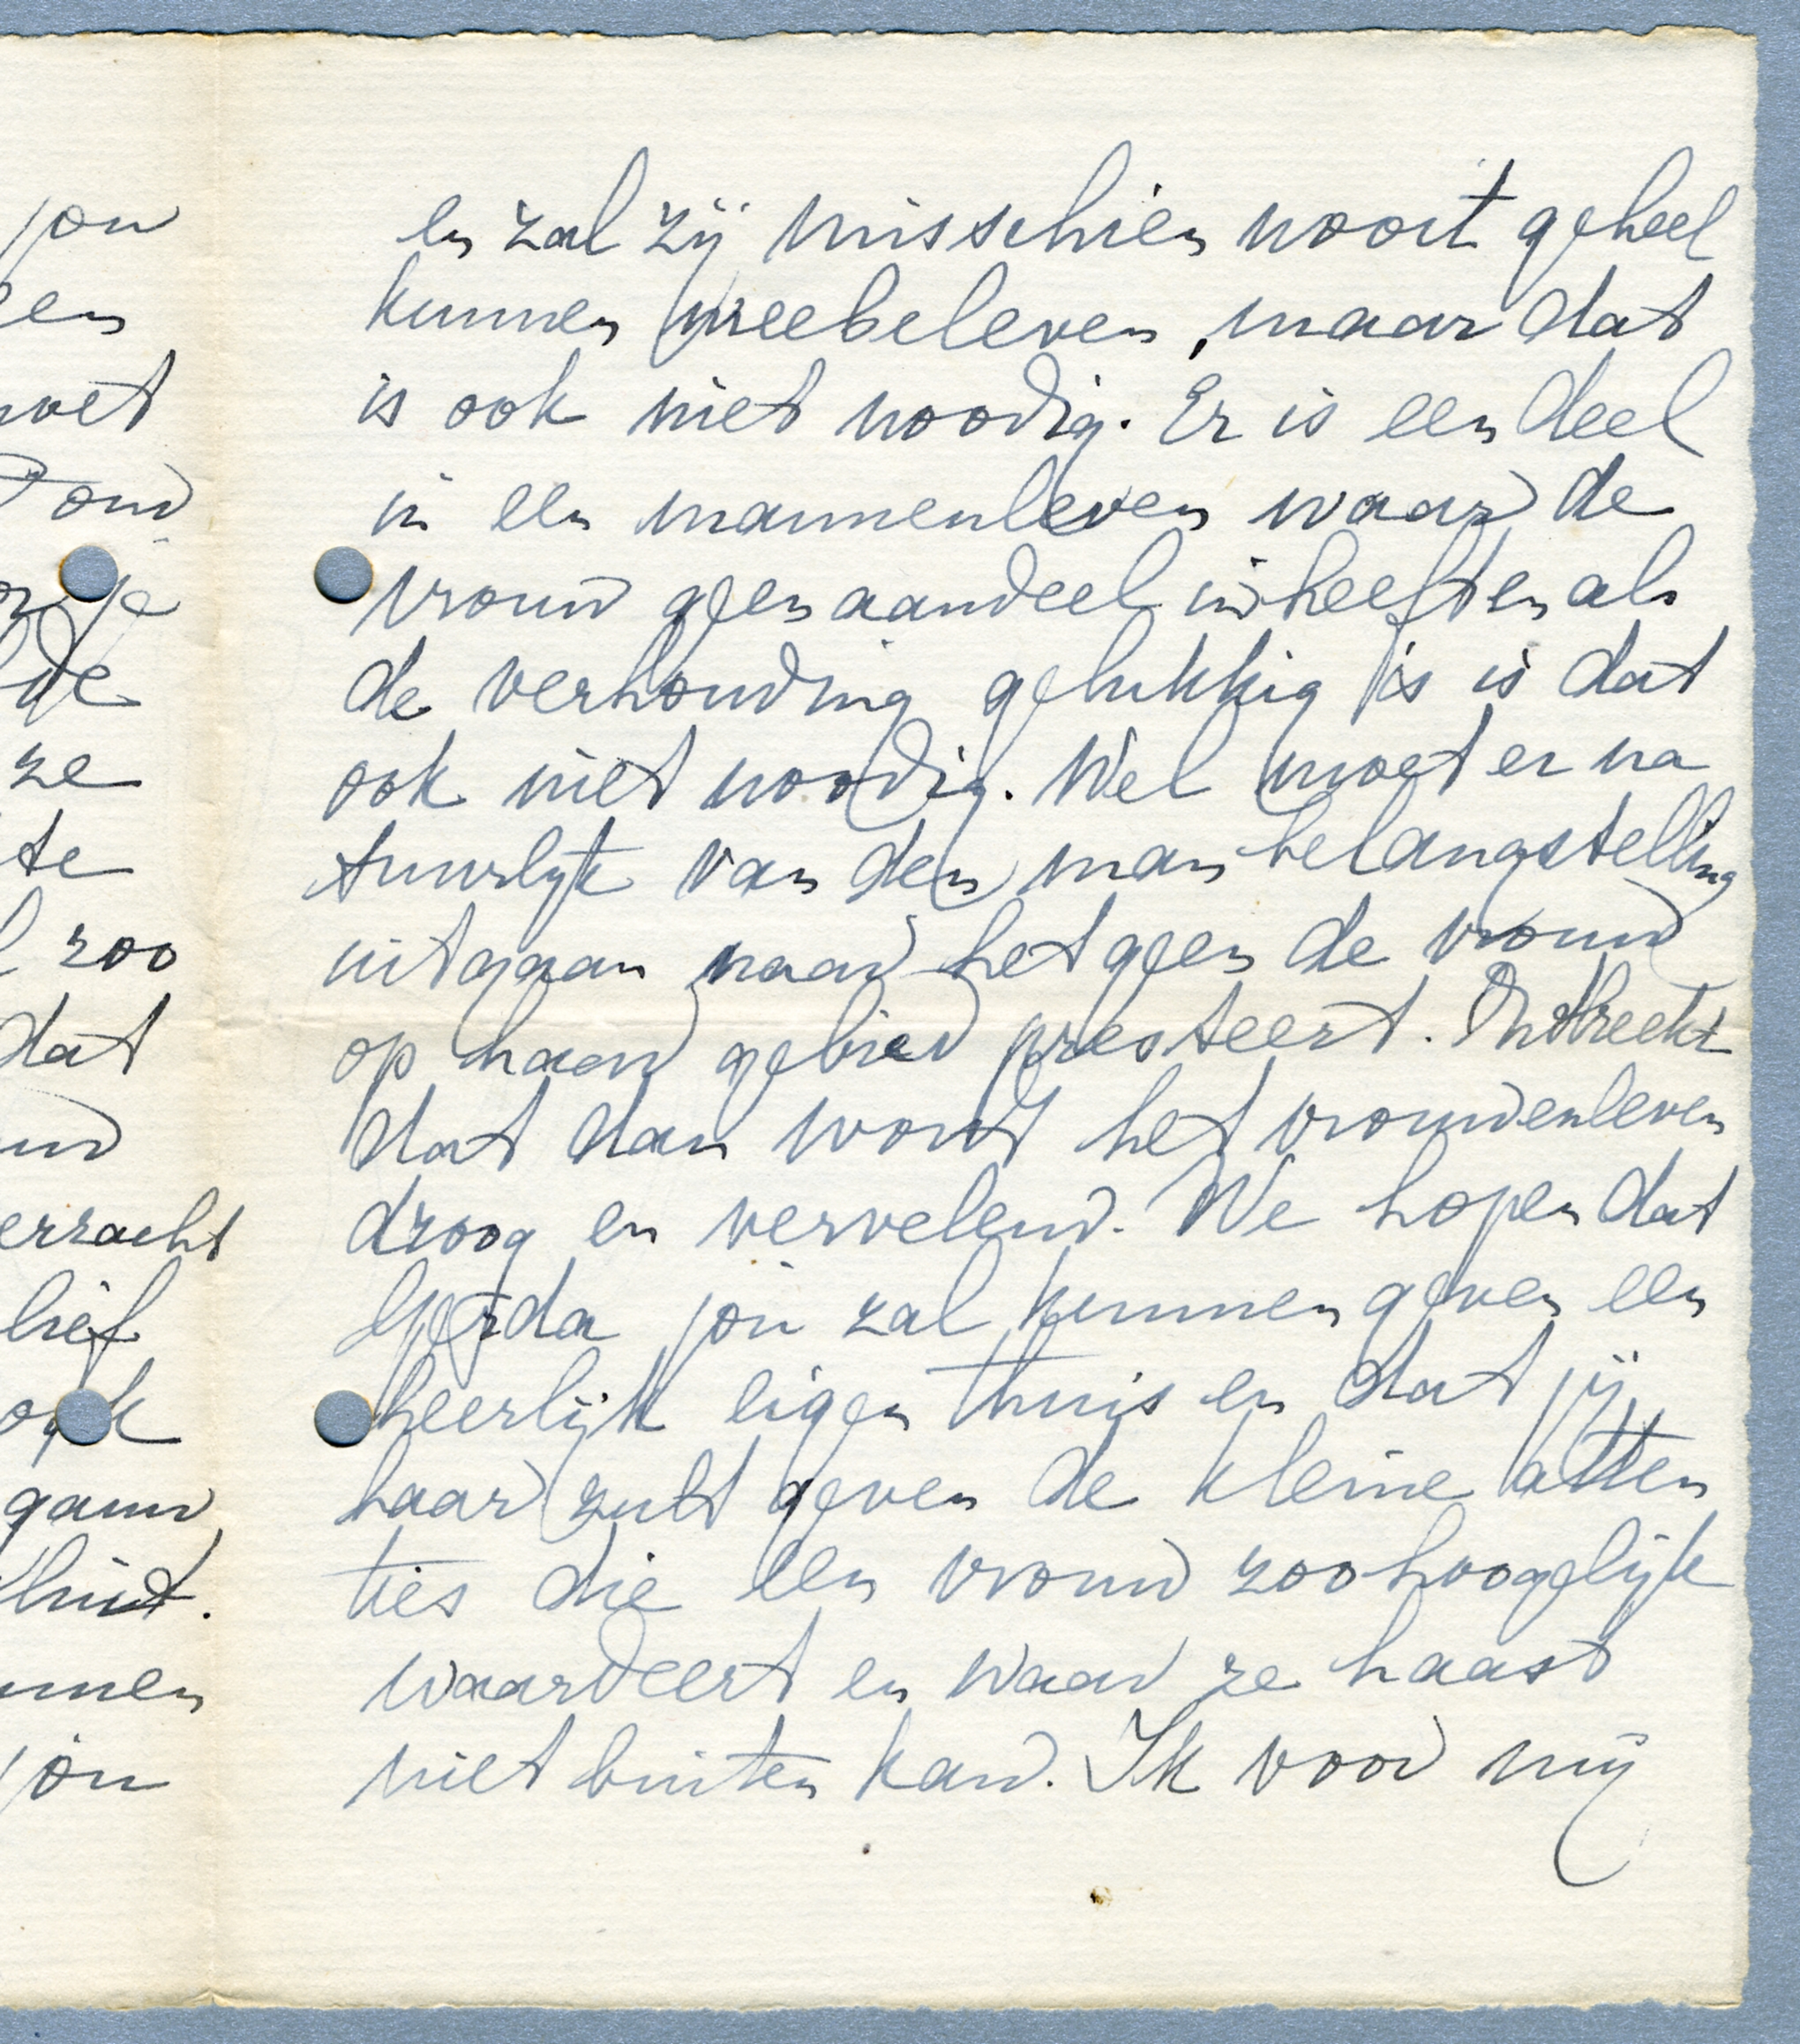 jou
en
moet
ond
je
lde
ze
te
zoo
dat
erracht
lief
ook
gauw
luit.
nnen
jou
en zal zij misschien nooit geheel
kunnen meebeleven, maar dat
is ook niet noodig. Er is een deel
in een mannenleven waar de
vrouw geen aandeel in heeft en als
de verhouding gelukkig is is dat
ook niet noodig. Wel moet er na
tuurlijk van den man belangstelling
uitgaan naar hetgeen de vrouw
op haar gebied presteert. Ontbreekt
dat dan wordt het vrouwenleven
droog en vervelend. We hopen dat
Gerda jou zal kunnen geven een
heerlijk eigen thuis en dat jij
haar zult geven de kleine atten
ties die een vrouw zoo hoogelijk
waardeert en waar ze haast
niet buiten kan. Ik voor mij